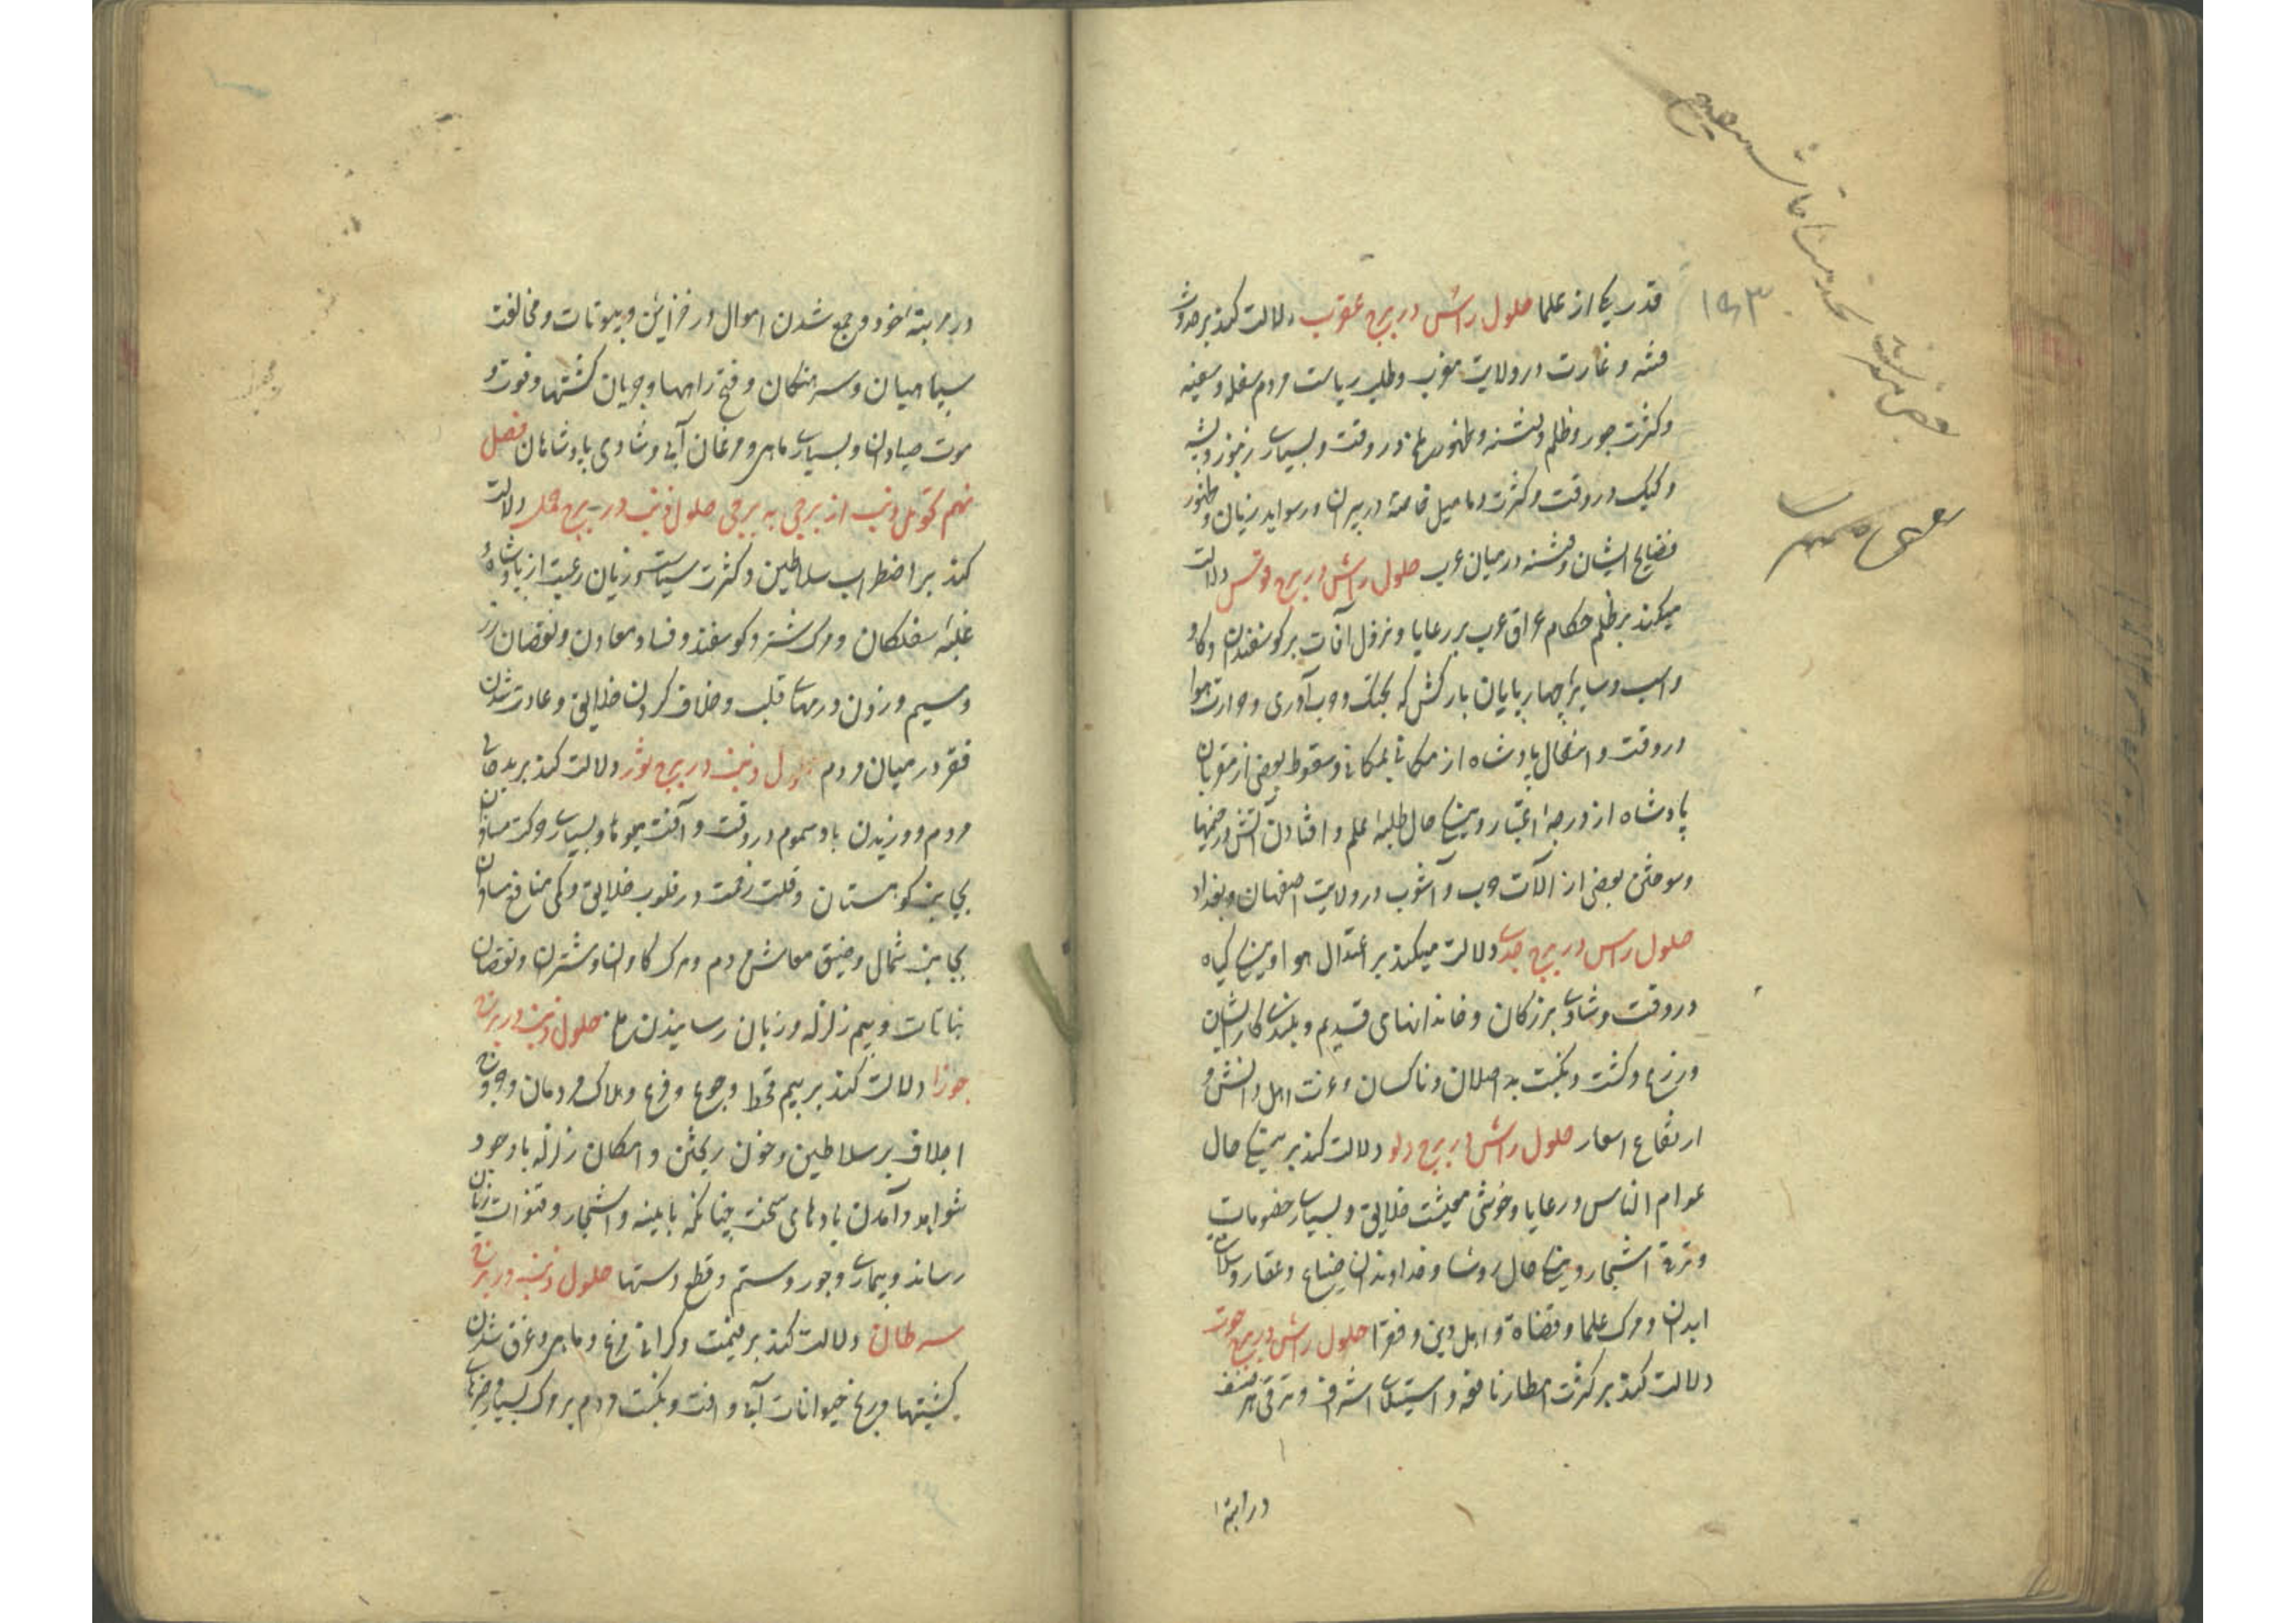 قدر یکی از علما حلول راس در برج عقرب دلالت کند بر حدوث
فتنه و غارت در ولایت مغرب و طلب ریاست مردم سفله و سفیه
وکثرت جور و ظلم و فتنه و ظهور در وقت و بسیاری زنبور و پشه
وکیک در وقت وکثرت دمامیل خاصة در پیران و رسواید زنان و ظهور
فضایح ایشان و فتنه در میان عرب حلول راس در برج قوس دلالت
میکند بر ظلم حکام عراق عرب بر رعایا و نزول آفات بر کوسفندان و کاو
و اسب و سایر چهارپایان بارکش که بجنک و حرب آوری و حرارت هوا
در وقت و انتقال پادشاه از مکانی بمکانی و سقوط بعضی از مقربان
پادشاه از درجه اعتبار و نیکی حال طلبه علم و افتادن آتش در خیمها
وسوختن بعضی از آلات حرب و آشوب در ولایت اصفهان و بغداد
حلول راس در برج جدی دلالت میکند بر اعتدال هوا و نیکی کیاه
در وقت و شادی بزرکان و خاندانهای قدیم و بلندی کار ایشان
و زرع و کشت و نکبت بد اصلان و ناکسان و عزت اهل دانش و
ارتفاع اسعار حلول راس در برج دلو دلالت کند بر نیکی حال
عوام الناس و رعایا و خوشی معیشت خلایق و بسیاری خصومات
و ترقی اشجار و نیکی حال روسا و خداوندان ضیاع و عقار و سلامتی
ابدان و مرک علما و قضاة و اهل دین و فقرا حلول راس در برج حوت
دلالت کند بر کثرت امطار نافعه و استیلای اشراف و ترقی هر صنف
در ابنه
۱۵۳
در مرابنه خود و جمع شدن اموال در خزاین و بیوتات و مخالفت
سپاهیان و سرهنکان و فتح راهها و جریان کشتیها و فوت و
موت صیادان و بسیاری ماهی و مرغان آبی و شادی پادشاهان فصل
نهم تحویل ذنب از برجی به برجی حلول ذنب در برج حمل دلالت
کند بر اضطراب سلاطین و کثرت سیاست و زیان رعیت از پادشاه و
غلبه سفلکان و مرک شتر و کوسفند و فساد معادن و نقصان زر
وسیم و زدن درمهای قلب و خلاف کردن خلایق و عادت شدن
فقر در میان مردم حلول ذنب در برج ثور دلالت کند بر بدحالی
مردم و وزیدن باد سموم در وقت و آفت میوها و بسیاری حرکت مسافران
بجانب کوهستان و قلت رغبت در قلوب خلایق و کمی منافع مسافران
بجانب شمال و ضیق معاش مردم و مرک کاوان و شتران و نقصان
نباتات و بیم زلزله و زیان رسانیدن حلول ذنب در برج
جوزا دلالت کند بر بیم قحط و جوع و فزع و هلاک مردمان و خروج
اجلاف بر سلاطین و خون ریختن و امکان زلزله با وجود
شواهد و آمدن بادهای سخت چنانکه بابنیه و اشجار و قنوات زیان
رساند و بیماری و جور و ستم و قطع دستها حلول ذنب در برج
سرطان دلالت کند بر قیمت و کرانی مرغ و ماهی و غرق شدن
کشتیها و رنج حیوانات آبی و آفت و نکبت مردم بزرک و بسیاری